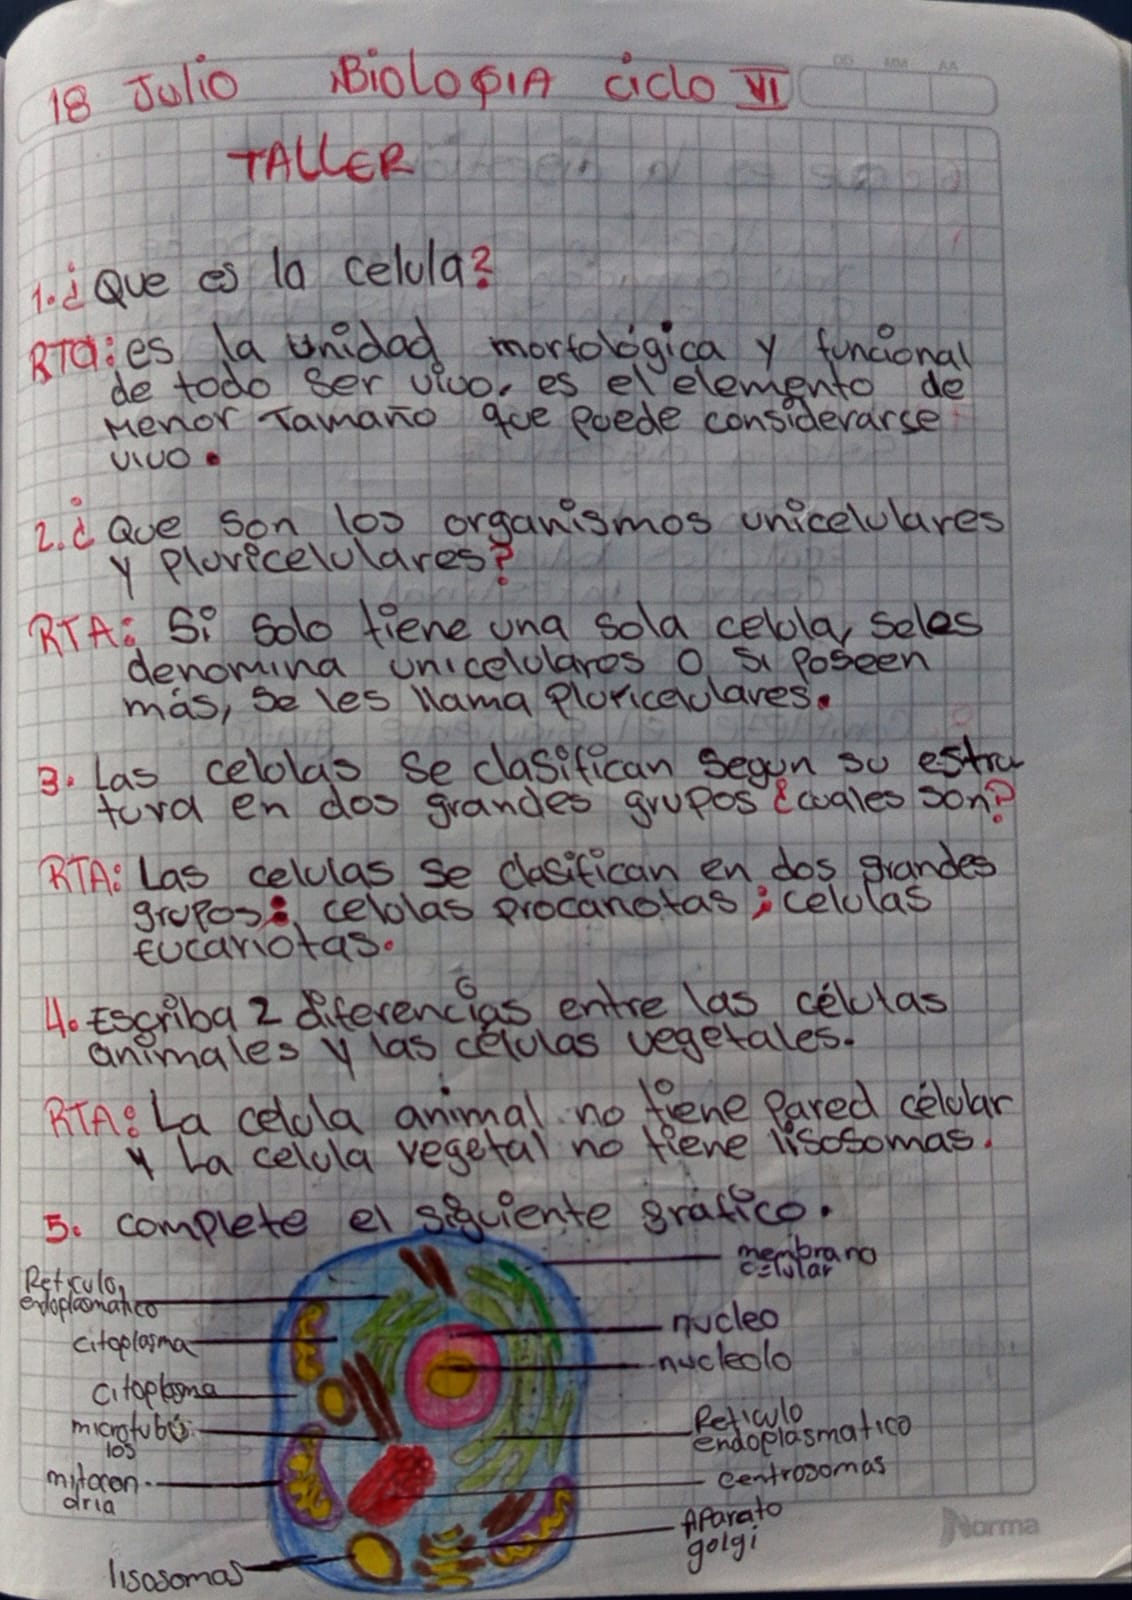 DD MM AA
18 Julio Biologia ciclo VI
TALLER
1. ¿Que es la celula?
RTA: es la unidad morfológica y funcional
de todo ser vivo, es el elemento de
Menor Tamaño que puede considerarse
vivo.
2. ¿Que son los organismos unicelulares
y pluricelulares?
RTA: Si solo tiene una sola celula, seles
denomina unicelulares o si poseen
más, se les llama pluricelulares.
3. Las celulas se clasifican segun su estru
tura en dos grandes grupos ¿cuales son?
RTA: Las celulas se clasifican en dos grandes
grupos: celulas procariotas; celulas
Eucariotas.
4. Escriba 2 diferencias entre las células
animales y las células vegetales.
RTA: La celula animal no tiene Pared célular
y La celula vegetal no tiene lisosomas.
5. complete el siguiente gráfico.
membrana
celular
Reticulo
endoplasmatico
nucleo
citoplasma
nucleolo
citoplasma
Reticulo
endoplasmatico
microtubu
los
centrosomas
mitocon
dria
Aparato
golgi
lisosomas
Norma